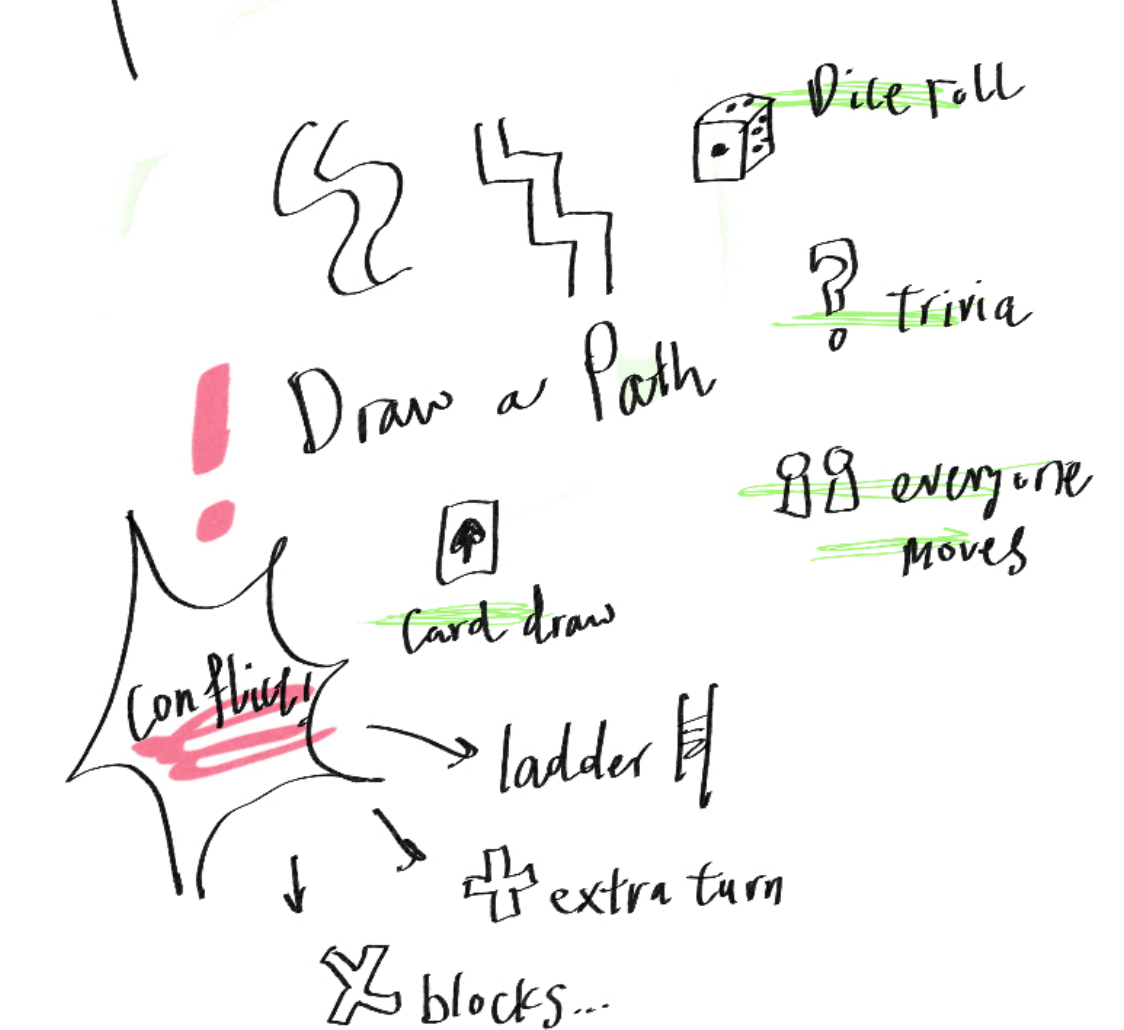 Dice roll
? trivia
Draw a Path
everyone
moves
!
card draw
Conflict!
ladder
extra turn
X blocks...